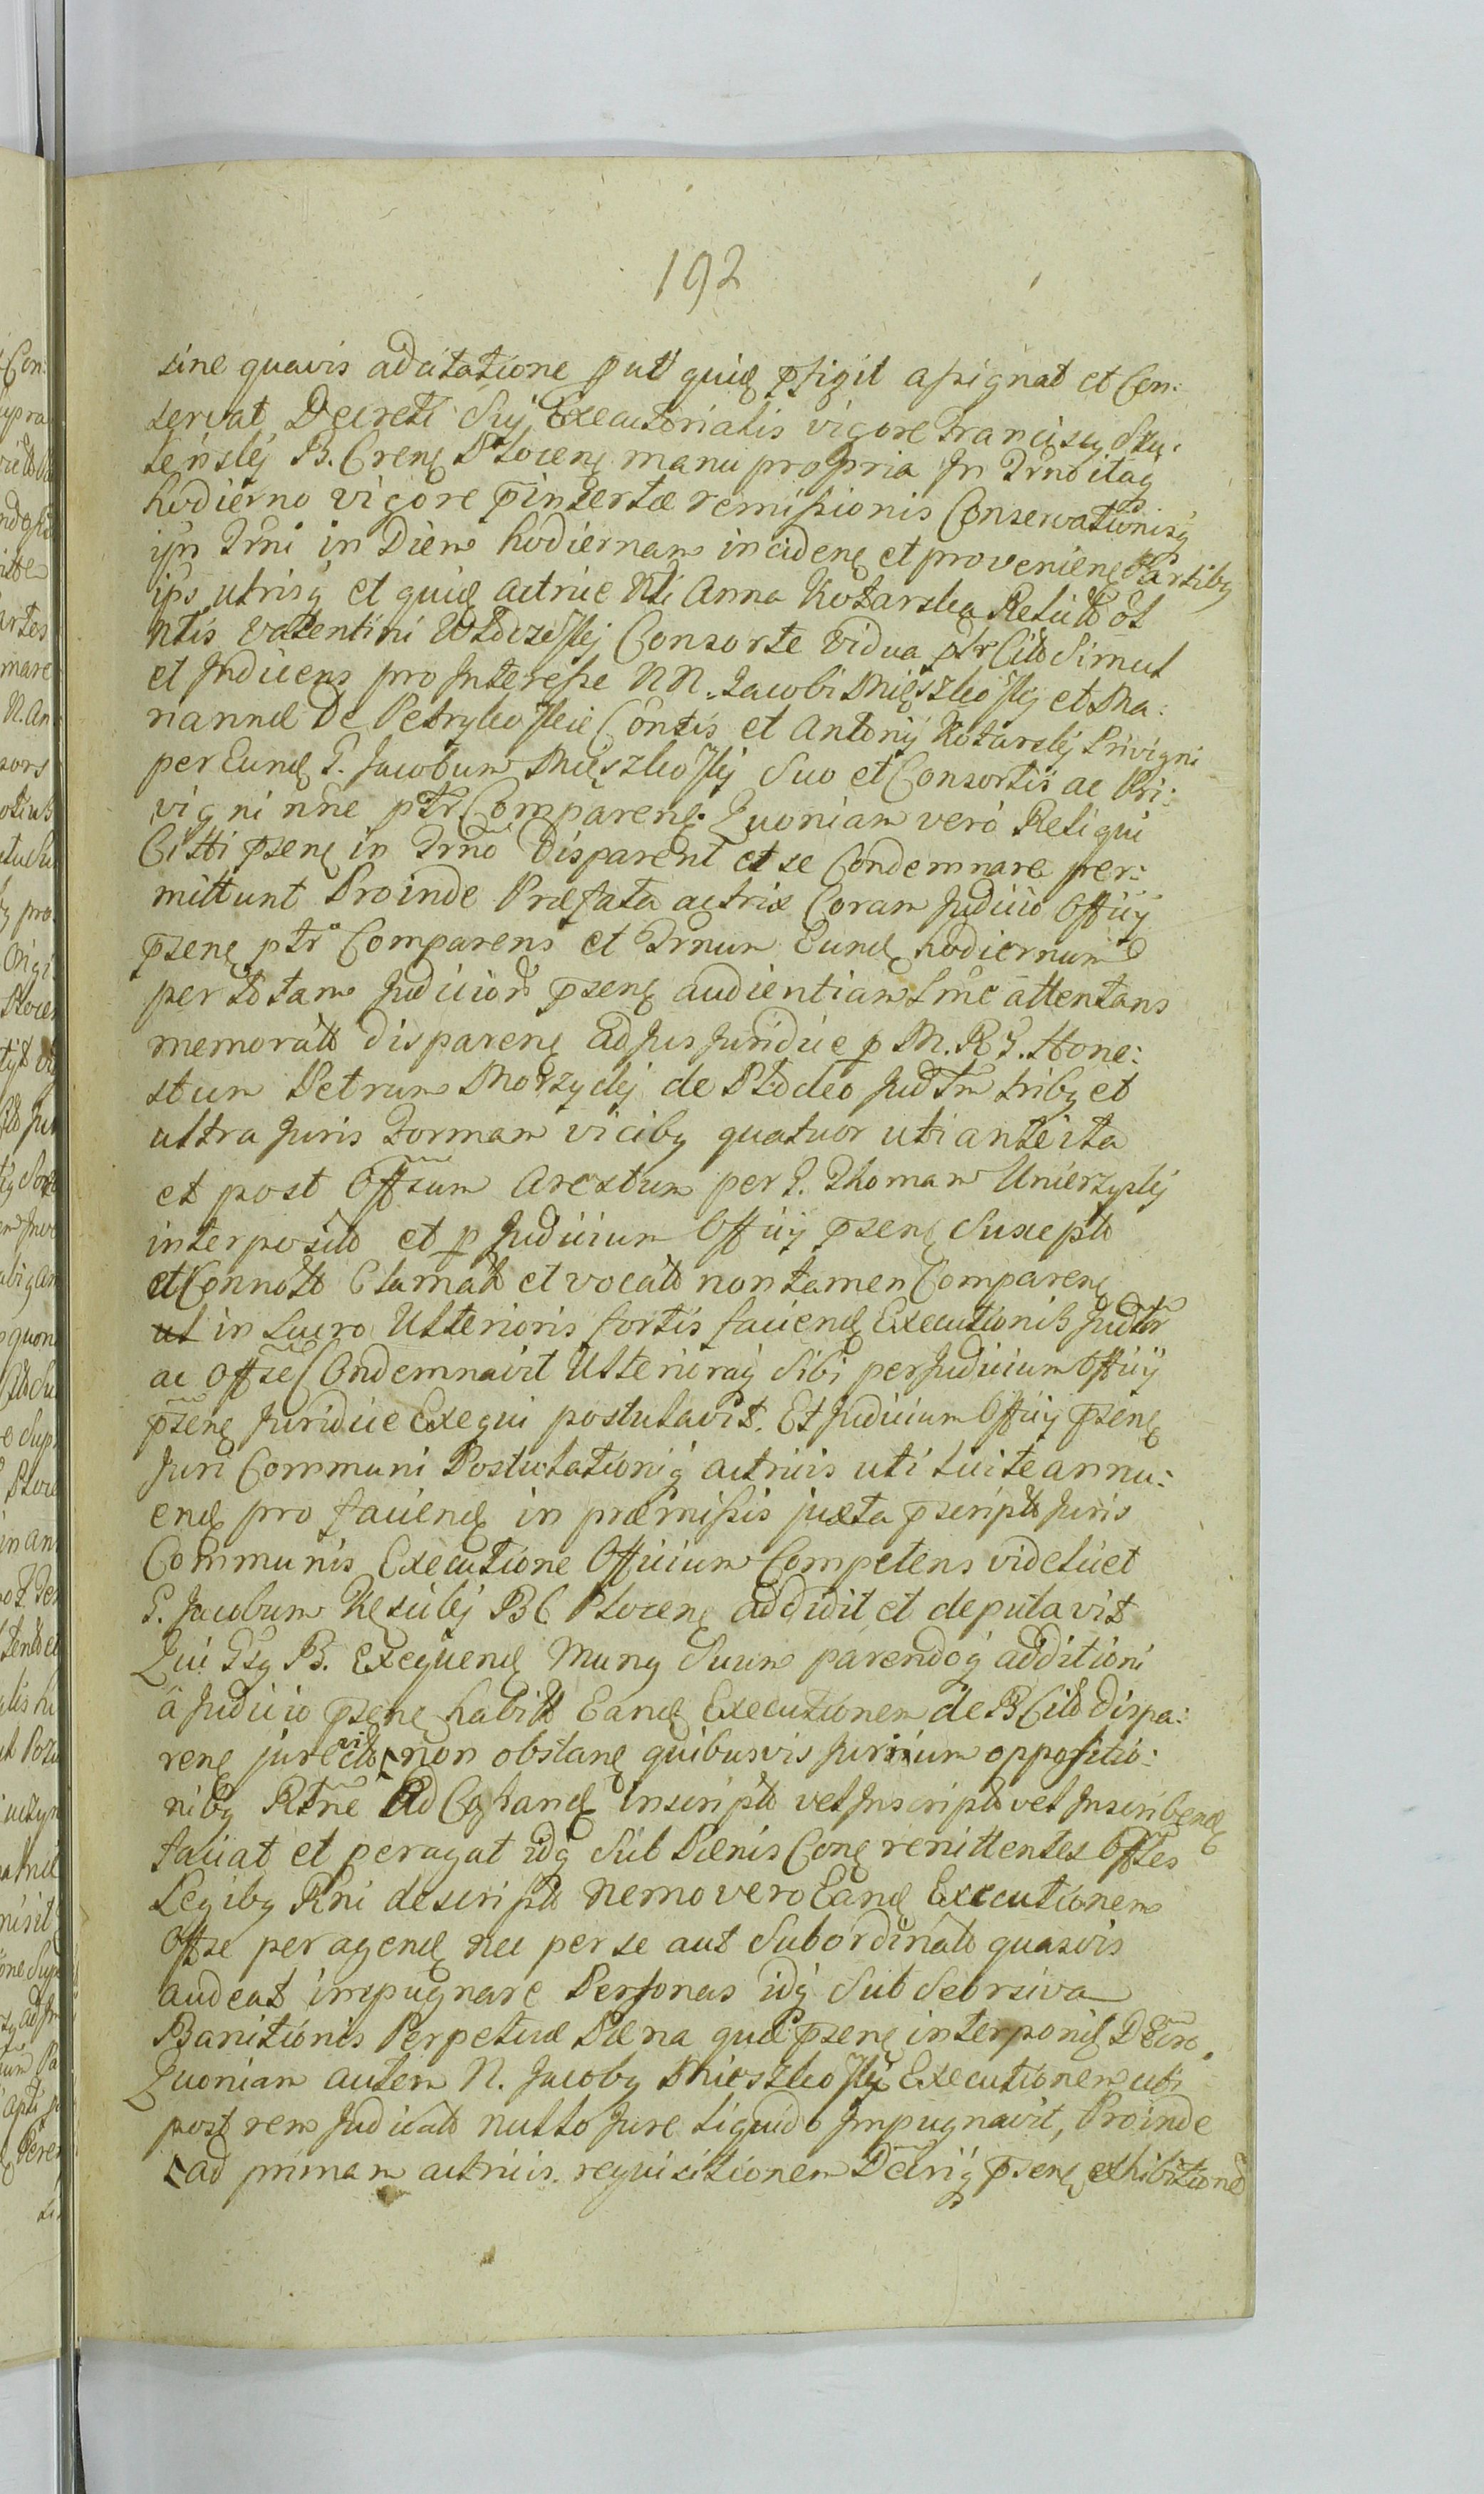 192
sine quavis adcitatione put quid pfigit assignat et Con:
servat Decreti Sui Executorialis vigore Franciscus
B. Crens Plocens manu propria In Trno itaq
hodierno vigore pinsertæ remissionis Conservationisq
ipn Trni in Diem hodiernam incidens et proveniens Partibq
ips utrisq et quid actrice Nli Anna Kozarska Relicta ol
Ntis Valentini Consorte Vidua ptr Cito Simul
et Judicens pro Interesse NN. Jacobi et Ma:
riannæ De Consis et Antonij Kozarskj Privigni
per Eund G. Jacobum Suo et Consortis ac Pri:
vigni nne ptr Comparens. Quoniam vero Reliqui
Citti psens in Trno Disparent et se Condemnare per:
mittunt Proinde Præfata actrix Coram Judicio Officij
psens ptr Comparens et Trnum Eund hodiernum
per totam Judiciord psens audientiam Lme attentans
memorato disparens ad Jus Juridice p M. R G. Hone:
stum Petrum de Judtm tribq et
ultra Juris Formam vicibq quatuor uti ante ita
et post Offsum Arestum per G. Thomam
interposito et p Judicium Officij psens Suscepto
et Connoto Clamato et vocato non tamen Comparens
ut in Lucro Ulterioris fortis faciend Executionis Judtr
ac Offse Condemnavit Ulterioraq Sibi per Judicium Officij
psens Juridice Exequi postulavit. Et Judicium Officij psens
Juri Communi Postulationiq actricis uti licite annu:
end pro faciend in præmissis juxta pscripto Juris
Communis Executione Officium Competens videlicet
G. Jacobum BC Plocens addidit et deputavit
Qui Gsq B. Exequend Munq Suum parendoq additioni
a Judicio psens habito Eand Executionem de B Cito dispa:
rens jure vicito non obstans quibusvis Jurium oppositio:
nibq Rtne Ad inscripto vel Inscripto vel Inscribend
faciat et peragat idq Sub Pænis Cons renittentes Offles
Legibq Rni descripto Nemo vero Eand Executionem
Offse peragend nec per se aut Subordinato quasvis
audeat impugnare Personas idq Sub
Banitionis Perpetuæ Pæna quæ psens interponit Dcro.
Quoniam autem N. Jacobq Executionem uti
post rem Judicato nullo Jure liquido Impugnavit, Proinde
ad primam actricis requisitionem Dcriq psens exhibitioned